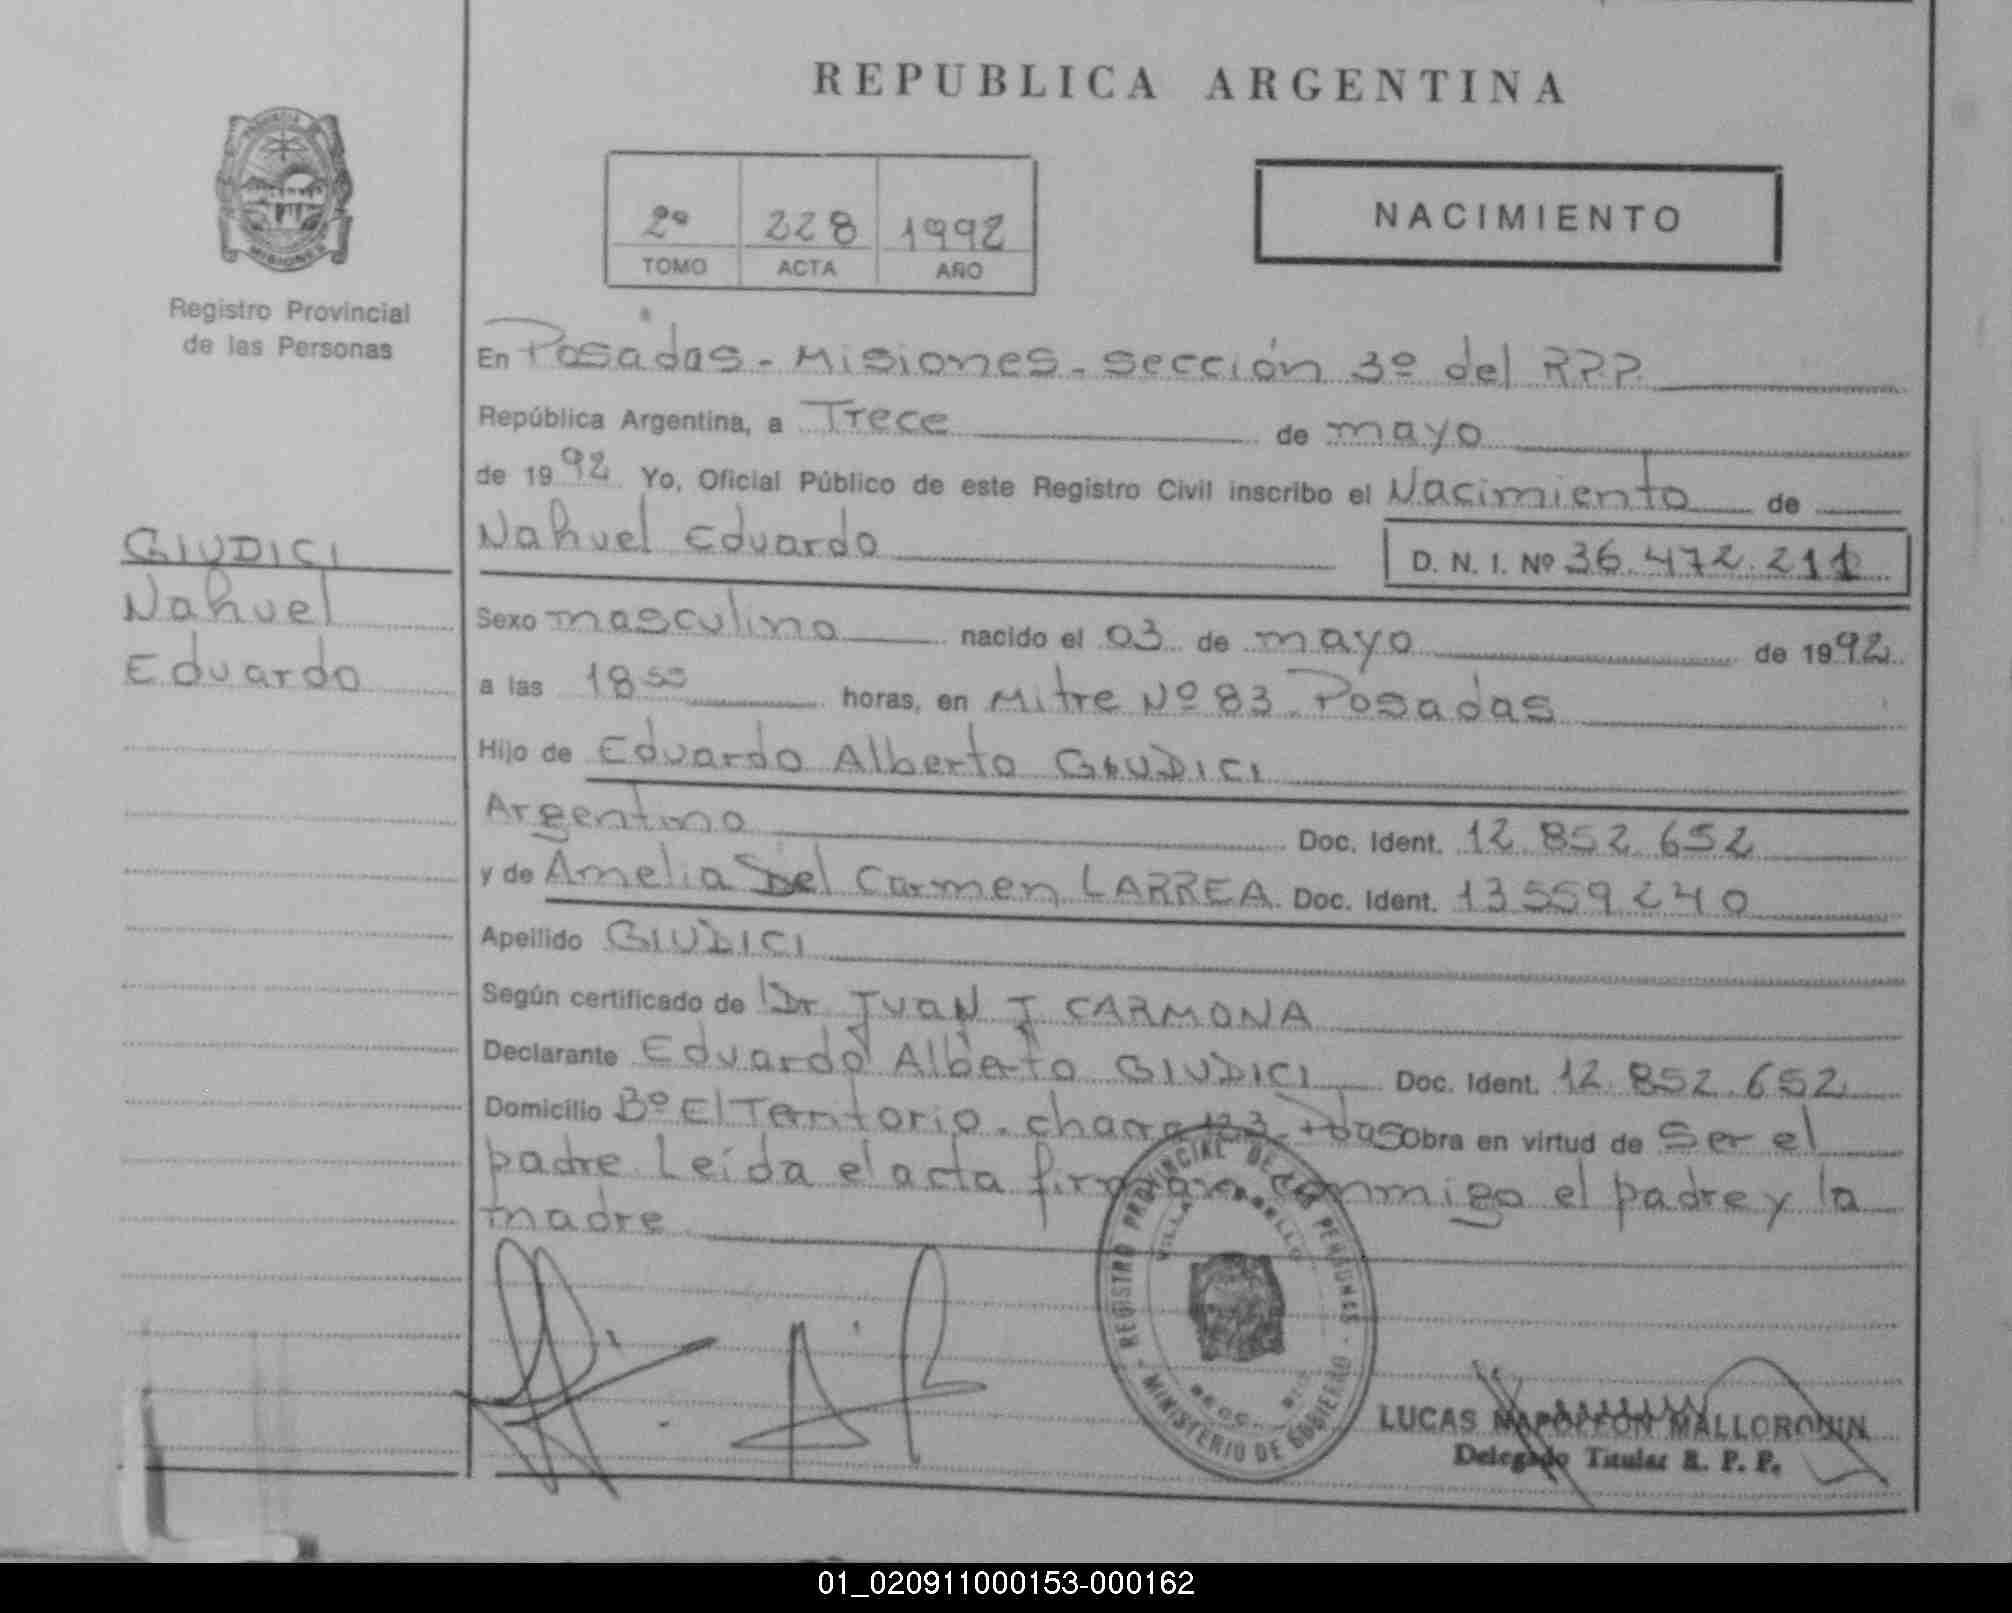 REPUBLICA ARGENTINA
PROVINCIA
MISIONES
Registro Provincial
de las Personas
2º 228 1992
TOMO ACTA AÑO
NACIMIENTO
En Posadas - Misiones - sección 3º del RPP
República Argentina, a Trece de mayo
de 1992 Yo, Oficial Público de este Registro Civil inscribo el Nacimiento de
Nahuel Eduardo D. N. I. Nº 36.472.211
GIUDICI
Nahuel
Eduardo
Sexo masculino nacido el 03 de mayo de 1992
a las 18 55 horas, en Mitre Nº 83 - Posadas
Hijo de Eduardo Alberto GIUDICI
Argentino Doc. Ident. 12.852.652
y de Amelia Del Carmen LARREA Doc. Ident. 13559240
Apellido GIUDICI
Según certificado de Dr. JUAN J CARMONA
Declarante Eduardo Alberto GIUDICI Doc. Ident. 12.852.652
Domicilio Bº El Territorio - chacra 123 - Pdas obra en virtud de Ser el
padre. Leída el acta firman conmigo el padre y la
madre
REGISTRO PROVINCIAL DE LAS PERSONAS
MINISTERIO DE GOBIERNO
VILLA
LUCAS NAPOLEON MALLORQUIN
Delegado Titular R. P. P.
01_020911000153-000162